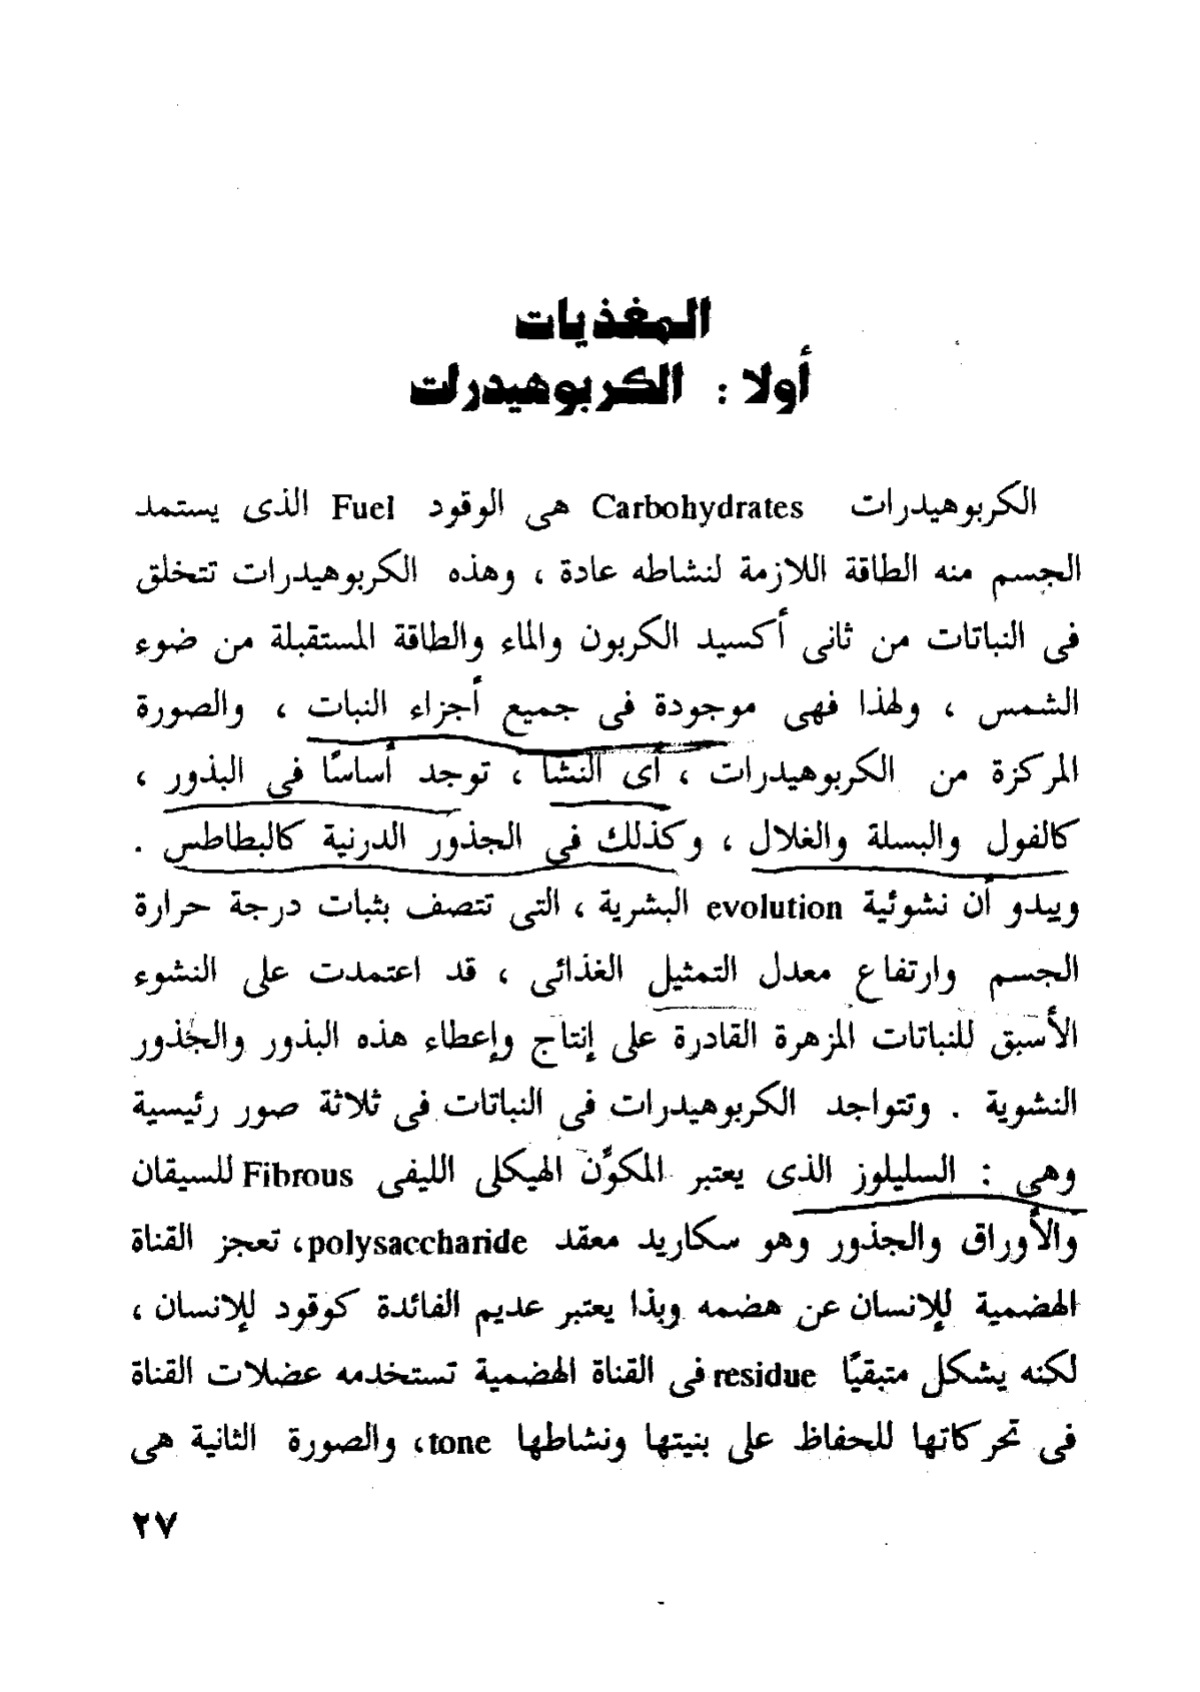 المغذيات
أولا : الكربوهيدرات
الكربوهيدرات Carbohydrates هى الوقود Fuel الذى يستمد
الجسم منه الطاقة اللازمة لنشاطه عادة ، وهذه الكربوهيدرات تتخلق
فى النباتات من ثانى أكسيد الكربون والماء والطاقة المستقبلة من ضوء
الشمس ، ولهذا فهى موجودة فى جميع أجزاء النبات ، والصورة
المركزة من الكربوهيدرات ، أى النشا ، توجد أساسًا فى البذور ،
كالفول والبسلة والغلال ، وكذلك فى الجذور الدرنية كالبطاطس .
ويبدو أن نشوئية evolution البشرية ، التى تتصف بثبات درجة حرارة
الجسم وارتفاع معدل التمثيل الغذائى ، قد اعتمدت على النشوء
الأسبق للنباتات المزهرة القادرة على إنتاج وإعطاء هذه البذور والجذور
النشوية . وتتواجد الكربوهيدرات فى النباتات فى ثلاثة صور رئيسية
وهى : السليلوز الذى يعتبر المكوّن الهيكلى الليفى Fibrous للسيقان
والأوراق والجذور وهو سكاريد معقد polysaccharide، تعجز القناة
الهضمية للإنسان عن هضمه وبذا يعتبر عديم الفائدة كوقود للإنسان ،
لكنه يشكل متبقيًا residue فى القناة الهضمية تستخدمه عضلات القناة
فى تحركاتها للحفاظ على بنيتها ونشاطها tone، والصورة الثانية هى
٢٧